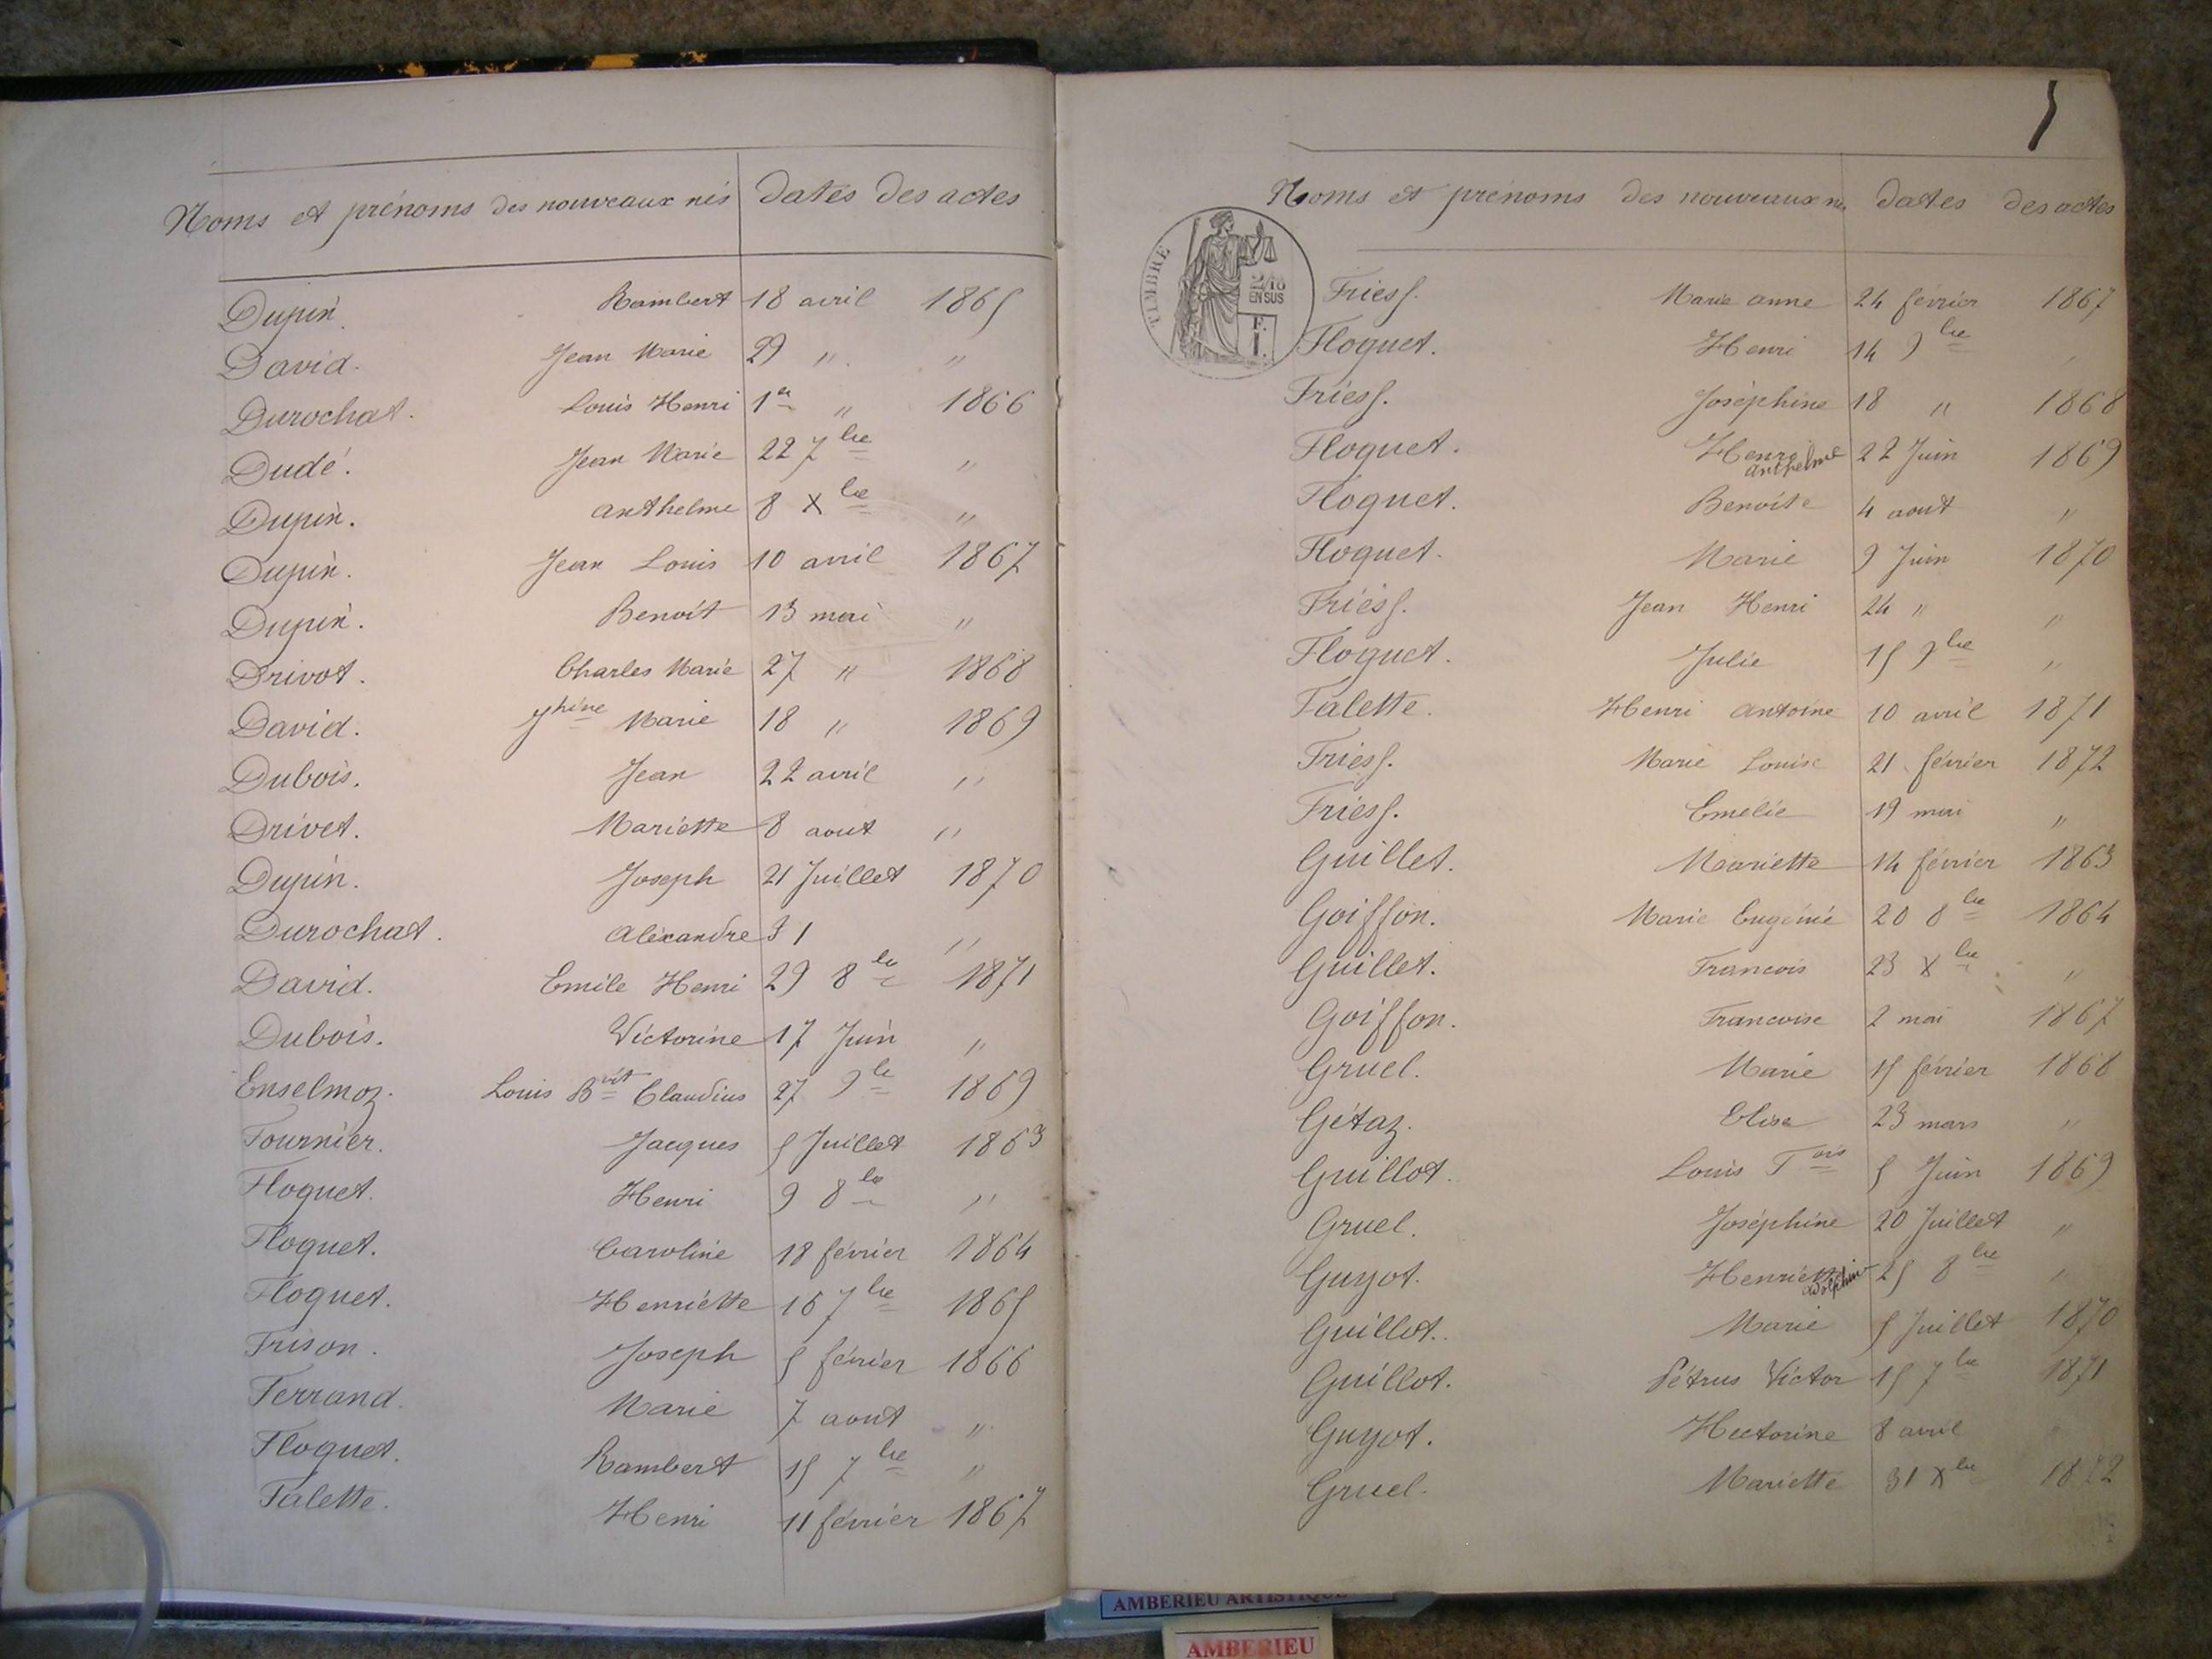 Noms et prénoms des nouveaux nés dates des actes
Dupin. Rambert 18 avril 1865
David. Jean Marie 29 " "
Durochat. Louis Henri 1er " 1866
Dudé. Jean Marie 22 7bre "
Dupin. anthelme 8 Xbre "
Dupin. Jean Louis 10 avril 1867
Dupin. Benoît 13 mai "
Drivot. Charles Marie 27 " 1868
David. Jphine Marie 18 " 1869
Dubois. Jean 22 avril "
Drivet. Mariette 8 aout "
Dupin. Joseph 21 Juillet 1870
Durochat. Alexandre 31 "
David. Emile Henri 29 8bre 1871
Dubois. Victorine 17 Juin "
Enselmoz. Louis Bvit Claudius 27 9bre 1869
Fournier. Jacques 5 Juillet 1863
Floquet. Henri 9 8bre "
Floquet. Caroline 18 février 1864
Floquet. Henriette 16 7bre 1865
Frison. Joseph 5 février 1866
Ferrand. Marie 7 aout "
Floquet. Rambert 15 7bre "
Falette. Henri 11 février 1867
5
Noms et prénoms des nouveaux nés dates des actes
TIMBRE
2/10
EN SUS
F.
I.
Friess. Marie anne 24 février 1867
Floquet. Henri 14 9bre "
Friess. Joséphine 18 " 1868
Floquet. Henri anthelme 22 Juin 1869
Floquet. Benoite 4 aout "
Floquet. Marie 9 Juin 1870
Friess. Jean Henri 24 " "
Floquet. Julie 15 9bre "
Falette. Henri antoine 10 avril 1871
Friess. Marie Louise 21 février 1872
Friess. Emélie 19 mai "
Guillet. Mariette 14 février 1863
Goiffon. Marie Eugénie 20 8bre 1864
Guillet. Francois 23 Xbre "
Goiffon. Francoise 2 mai 1867
Gruel. Marie 15 février 1868
Gétaz. Elisa 23 mars "
Guillot. Louis Fois 5 Juin 1869
Gruel. Joséphine 20 Juillet "
Guyot. Henriette adolphine 25 8bre "
Guillot. Marie 5 Juillet 1870
Guillot. Pétrus Victor 15 7bre 1871
Guyot. Hectorine 8 avril
Gruel. Mariette 31 Xbre 1872
AMBERIEU ARTISTIQUE
AMBERIEU